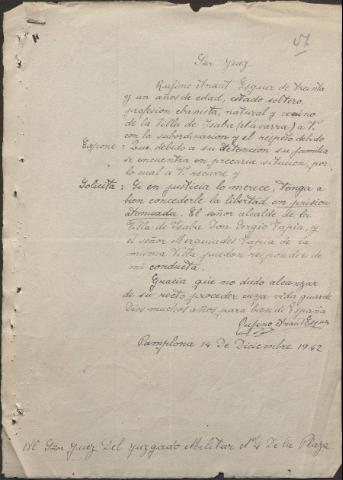 57
Sr Juez
Rufino Anaut Esquer de treinta
y un años de edad, estado soltero
profesion ebanista, natural y vecino
de la Villa de Isaba (Navarra) a V.
con la subordinacion y el respeto debido
Expone: Que debido a su detencion su familia
se encuentra en precaria situcion, por
lo cual a V. recurre y
Solicita: Si en justicia lo merece, tenga a
bien concederle la libertad en prision
atenuada. El señor alcalde de la
Villa de Isaba Don Sergio Tapia, y
el señor Merquiades Tapia de la
misma Villa pueden responder de
mi conducta.
Gracia que no dudo alcanzar
de su recto proceder cuya vida guarde
Dios muchos años, para bien de España
Rufino Anaut Esquer
Pamplona 14 De Diciembre 1942
Al Sr Juez Del Juzgado Militar Nº4 De la Plaza